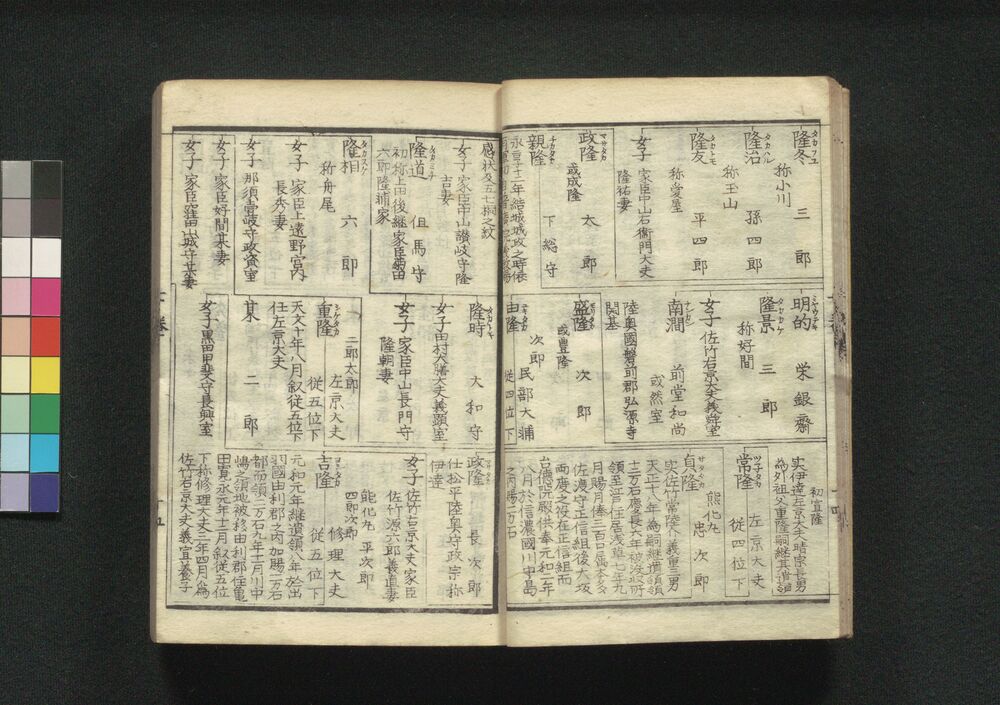 隆冬 三郎
タカフユ
称小川
隆治 孫四郎
タカハル
称玉山
隆友 平四郎
タカトモ
称愛屋
女子 家臣中山右衞門大夫
隆祐妻
政隆 太郎
マサタカ
或成隆
親隆 下総守
チカタカ
永享十二年結城城攻之時
感状及五七桐之紋
女子 家臣中山讃岐守隆
吉妻
隆道 但馬守
タカミチ
初称上田後継家臣
六郎隆浦家
隆相 六郎
タカスケ
称舟尾
女子 家臣上遠野宮内
長秀妻
女子 那須壹岐守政資室
女子 家臣好間某妻
女子 家臣窪田山城守某妻
明的 栄銀齋
隆景 三郎
タカカケ
称好間
女子 佐竹右京大夫義舜室
南澗 前堂和尚
或然室
陸奥國磐前郡弘源寺
開基
盛隆 次郎
モリタカ
或豊隆
由隆 次郎 民部大輔
従四位下
隆時 大和守
女子 田村大膳大夫義顕室
女子 家臣中山長門守
隆朝妻
重隆 二郎太郎
シケタカ
左京大夫
従五位下
天文十年八月叙従五位下
任左京大夫
某 二郎
女子 黒田甲斐守長興室
初宣隆
実伊達左京大夫晴宗長男
為外祖父重隆嗣継其遺跡
常隆 左京大夫
ツネタカ
従四位下
貞隆 忠次郎
サタタカ
能化丸
実佐竹常陸介義重三男
天正十八年為嗣継遺領領
十二万石慶長六年被没收所
領至江戸住居浅草七年九
月賜月俸三百口属本多
佐渡守正信組後大坂
両度之役在正信組而
台徳院殿供奉元和二年
八月於信濃國川中島
之内賜一万石
政隆 長次郎
仕松平陸奥守政宗称
伊達
女子 佐竹右京大夫家臣
佐竹源六郎義直妻
能化丸 平次郎
四郎次郎
吉隆 修理大夫
ヨシタカ
従五位下
元和六年継遺領八年於出
羽國由利郡之内加賜一万石
都而領二万石九年十一月川中
嶋之領地被移由利郡住亀
田寛永元年十二月叙従五位
下称修理大夫三年四月為
佐竹右京大夫義宣養子